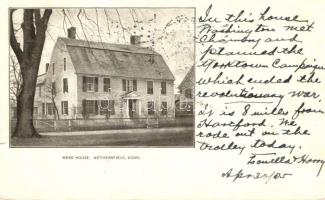 In this house
Washington met
and
planned the
Yorktown Campaign
which ended the
revolutionary war,
it is 8 miles from
Hartford. We
rode out on the
trolley today.
Louella & Harry
Apr 30/05
WEBB HOUSE, WETHERSFIELD, CONN.